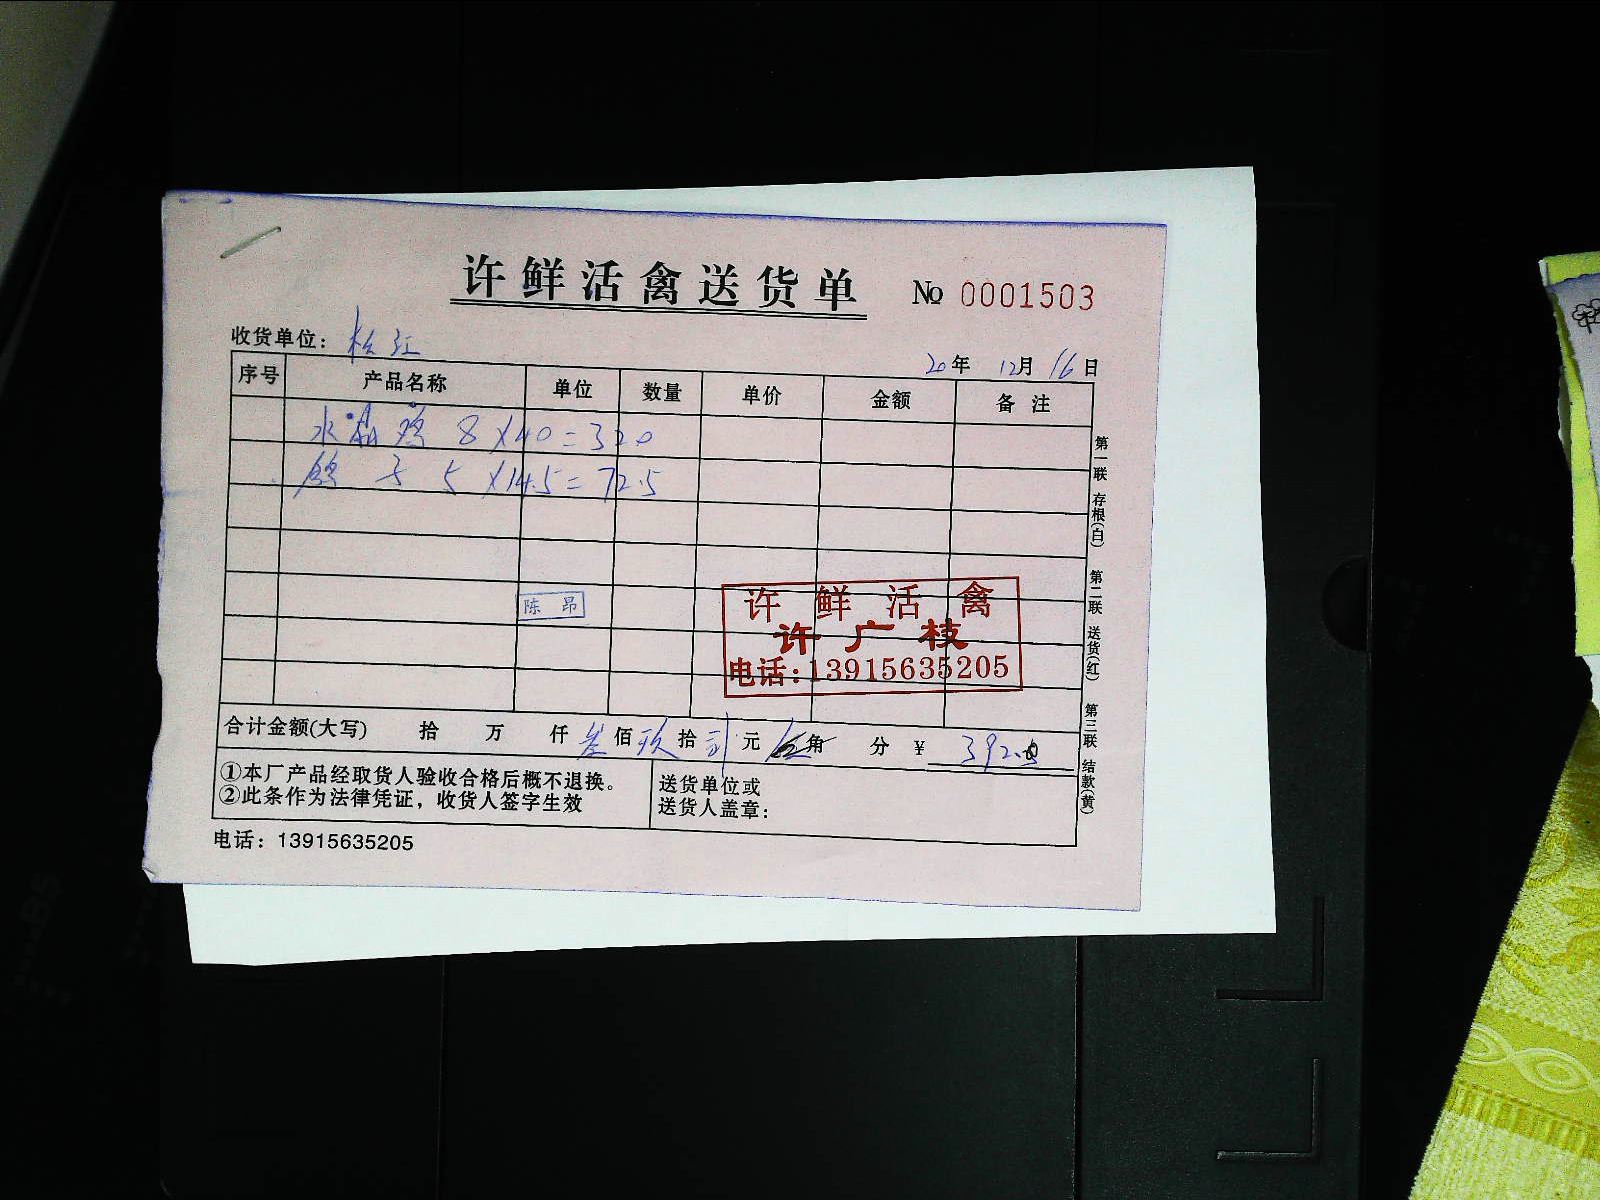 许鲜活禽送货单 No 0001503
收货单位： 松江
20年 12月 16日
序号 产品名称 单位 数量 单价 金额 备注
水 鸡 8×40=320
鸽子 5×14.5=72.5
陈昂
许鲜活禽
许广枝
电话：13915635205
合计金额(大写) 拾 万 仟 叁佰 玖拾 贰元 伍角 分 ¥ 392.
①本厂产品经取货人验收合格后概不退换。
②此条作为法律凭证，收货人签字生效
送货单位或
送货人盖章：
电话：13915635205
第一联 存根(白) 第二联 送货(红) 第三联 结款(黄)